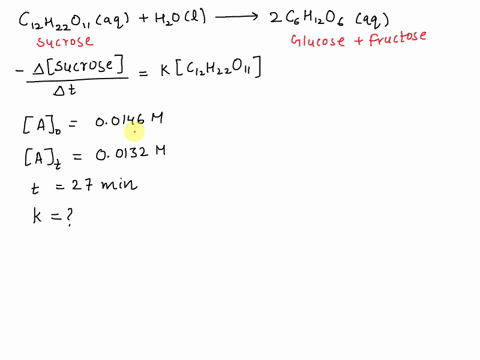 C₁₂H₂₂O₁₁(aq) + H₂O(l) ⟶ 2C₆H₁₂O₆ (aq)
Sucrose Glucose + fructose
- Δ[Sucrose]/Δt = K[C₁₂H₂₂O₁₁]
[A]₀ = 0.0146 M
[A]ₜ = 0.0132 M
t = 27 min
k = ?